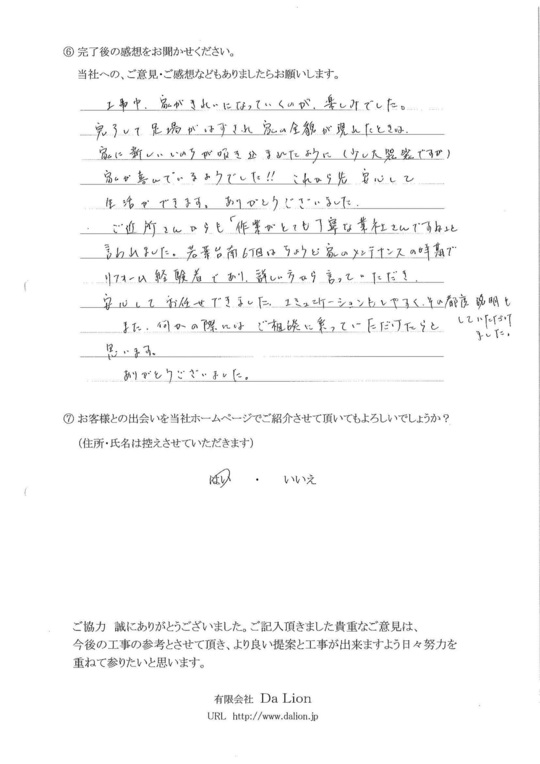 ⑥ 完了後の感想をお聞かせください。
当社への、ご意見・ご感想などもありましたらお願いします。
工事中、家がきれいになっていくのが、楽しみでした。
完了して足場がはずされ 家の全貌が現れたときは、
家に新しいいのちが吹き込まれたように(少し大袈裟ですが)
家が喜んでいるようでした!! これから先 安心して
生活ができます。ありがとうございました。
ご近所さんからも「作業がとても丁寧な業社さんですね」と
言われました。若葉台南6丁目はちょうど家のメンテナンスの時期で
リフォーム経験者であり、詳しい方から言っていただき、
安心してお任せできました。コミュニケーションもしやすく、その都度説明も
していただけ
ました。
また、何かの際には ご相談に乗っていただけたらと
思います。
ありがとうございました。
⑦ お客様との出会いを当社ホームページでご紹介させて頂いてもよろしいでしょうか?
(住所・氏名は控えさせていただきます)
はい ・ いいえ
ご協力 誠にありがとうございました。ご記入頂きました貴重なご意見は、
今後の工事の参考とさせて頂き、より良い提案と工事が出来ますよう日々努力を
重ねて参りたいと思います。
有限会社 Da Lion
URL http://www.dalion.jp